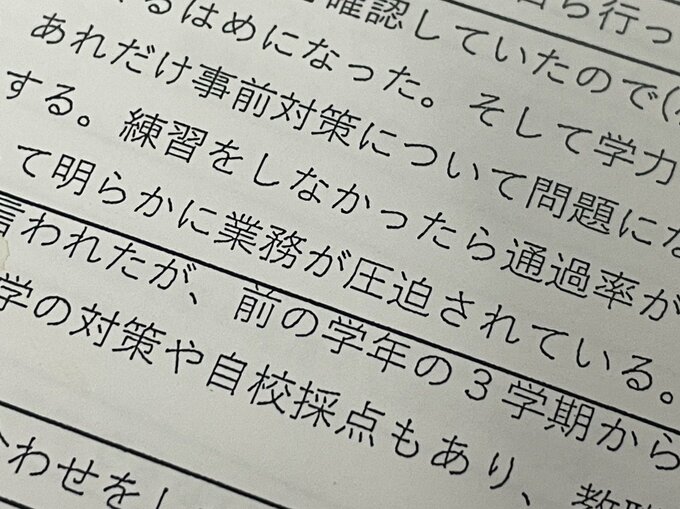 ら行っ
確認していたので(
るはめになった。そして学力
あれだけ事前対策について問題にな
する。練習をしなかったら通過率が
て明らかに業務が圧迫されている。
言われたが、前の学年の3学期から
学の対策や自校採点もあり、教職
わせをし